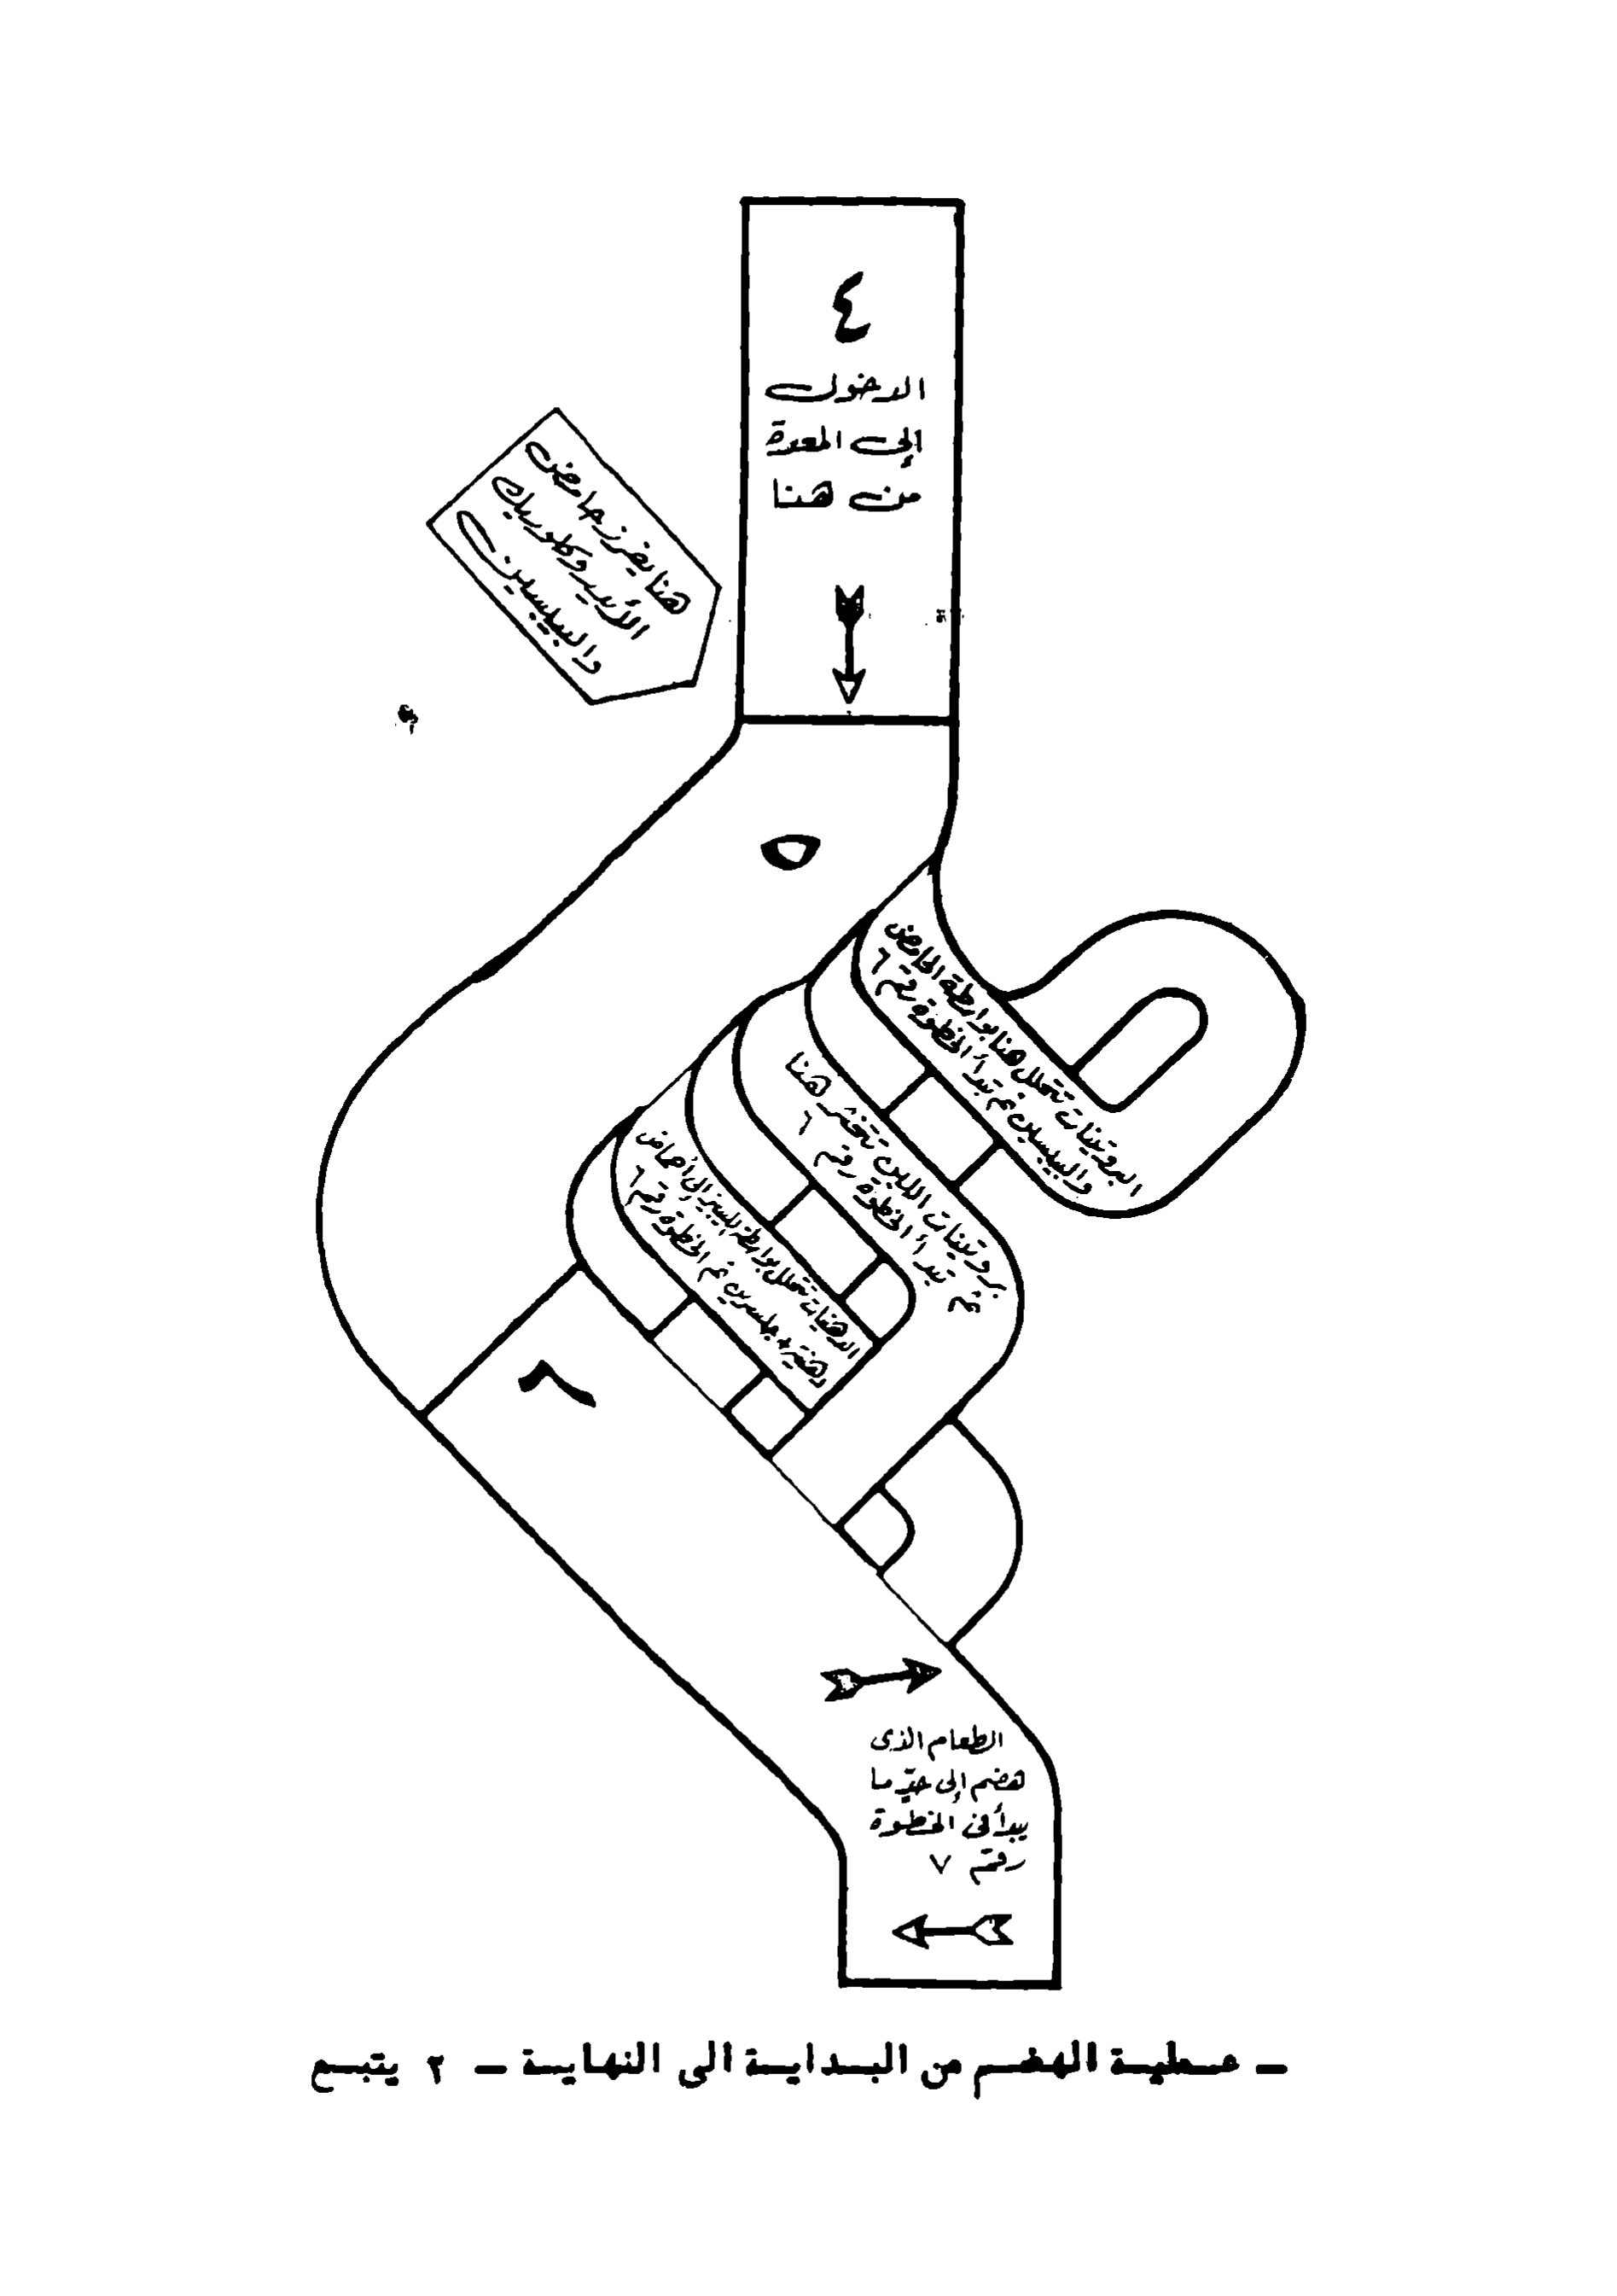 ٤
الدخول
إلى المعدة
من هنا
هنا يفرز حامض
الأيدروكلوريك
والبيبسين
٥
البروتينات تتحلل هنا بواسطة الحامض
والبيبسين ثم تبدأ الخطوة رقم ٦
بروتينات اللبن تتخثر هنا
ثم تبدأ الخطوة رقم ٦
الدهنيات تتحلل بواسطة الليبيز إلى أحماض
دهنية وجلسرين ثم الخطوة رقم ٦
٦
الطعام الذى
هضم إلى حد ما
يبدأ فى الخطوة
رقم ٧
ـ عملية الهضم من البداية الى النهاية ـ ٢ يتبع